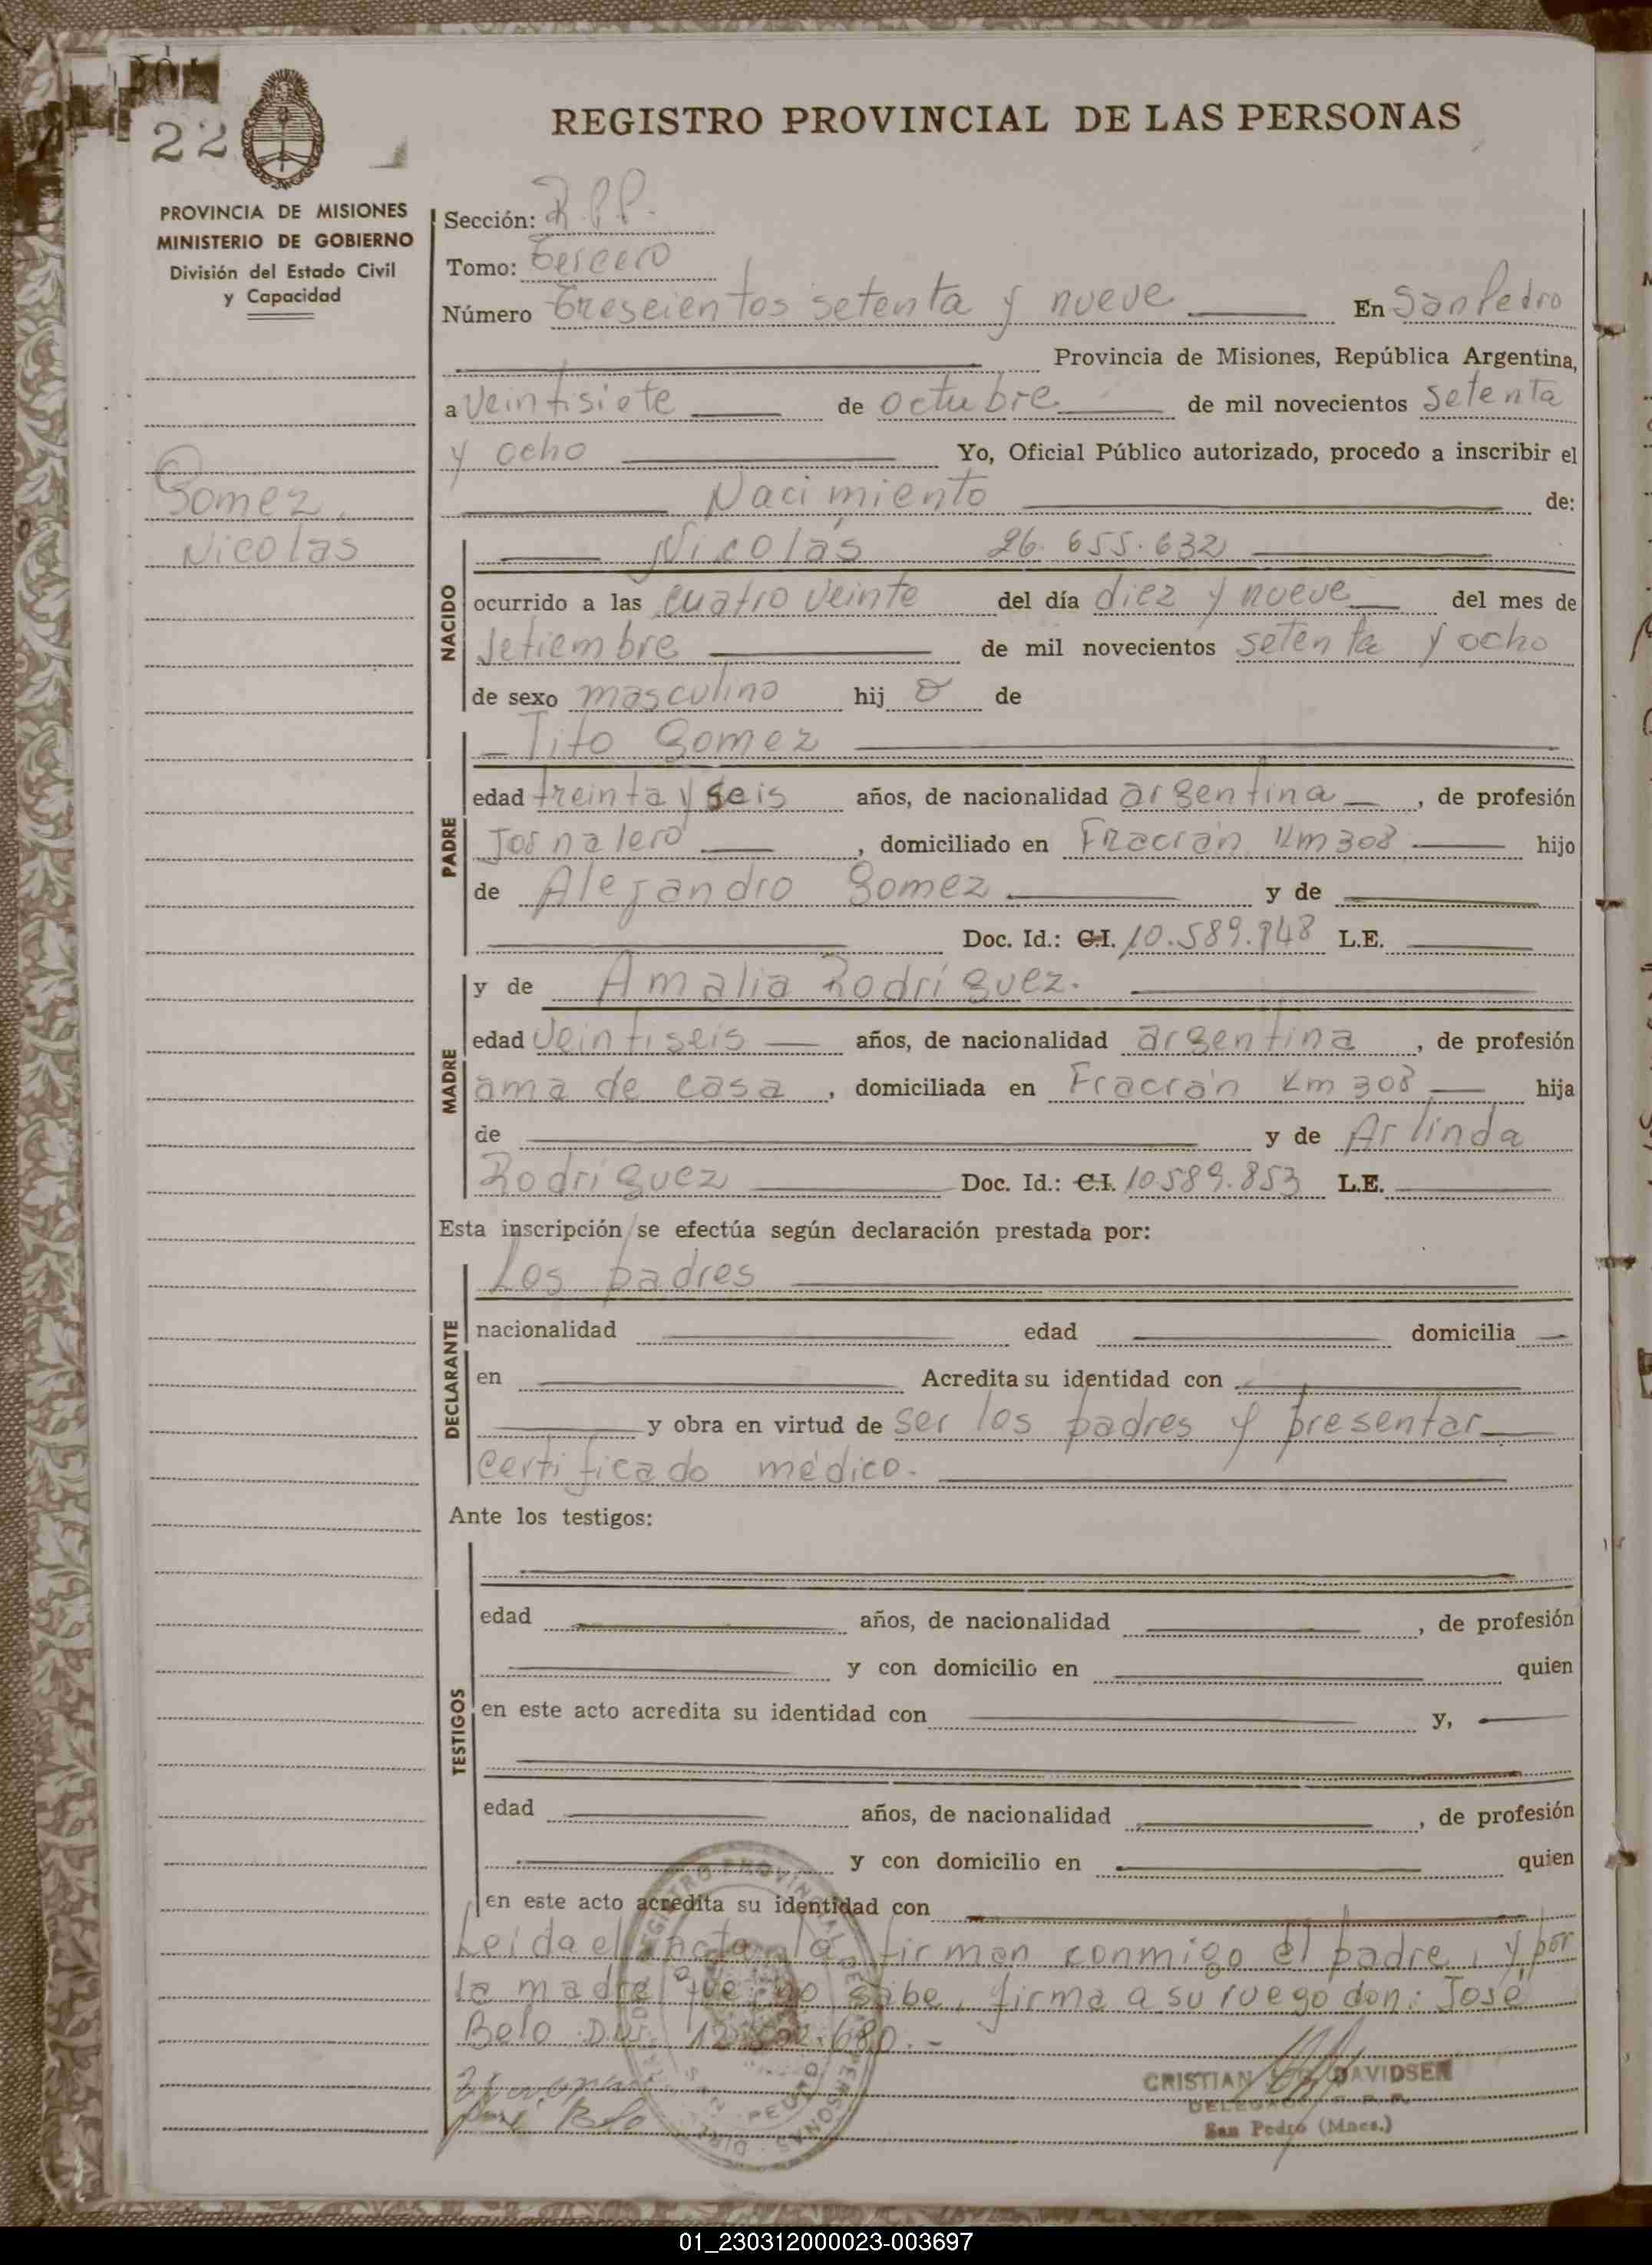 22
REGISTRO PROVINCIAL DE LAS PERSONAS
PROVINCIA DE MISIONES
MINISTERIO DE GOBIERNO
División del Estado Civil
y Capacidad
Gomez,
Nicolas
Sección: R.P.P.
Tomo: Tercero
Número Trescientos setenta y nueve En San Pedro
Provincia de Misiones, República Argentina,
a veintisiete de octubre de mil novecientos setenta
y ocho Yo, Oficial Público autorizado, procedo a inscribir el
Nacimiento de:
NACIDO
Nicolás 26.655.632
ocurrido a las cuatro veinte del día diez y nueve del mes de
setiembre de mil novecientos setenta y ocho
de sexo masculino hij o de
PADRE
Tito Gomez
edad treinta y seis años, de nacionalidad argentina, de profesión
Jornalero, domiciliado en Fracrán Km 308 hijo
de Alejandro Gomez y de
Doc. Id.: C.I. 10.589.948 L.E.
MADRE
y de Amalia Rodríguez.
edad veintiseis años, de nacionalidad argentina, de profesión
ama de casa, domiciliada en Fracrán Km 308 hija
de y de Arlinda
Rodriguez Doc. Id.: C.I. 10.589.853 L.E.
Esta inscripción se efectúa según declaración prestada por:
DECLARANTE
Los padres
nacionalidad edad domicilia
en Acredita su identidad con
y obra en virtud de ser los padres y presentar
certificado médico.
Ante los testigos:
TESTIGOS
edad años, de nacionalidad , de profesión
y con domicilio en quien
en este acto acredita su identidad con y,
edad años, de nacionalidad , de profesión
y con domicilio en quien
en este acto acredita su identidad con
Leida el acta la firman conmigo el padre, y por
la madre que no sabe, firma a su ruego don: José
Belo
José Belo
REGISTRO PROVINCIAL DE PERSONAS
SAN PEDRO
CRISTIAN DAVIDSEN
San Pedro (Mnes.)
01_230312000023-003697